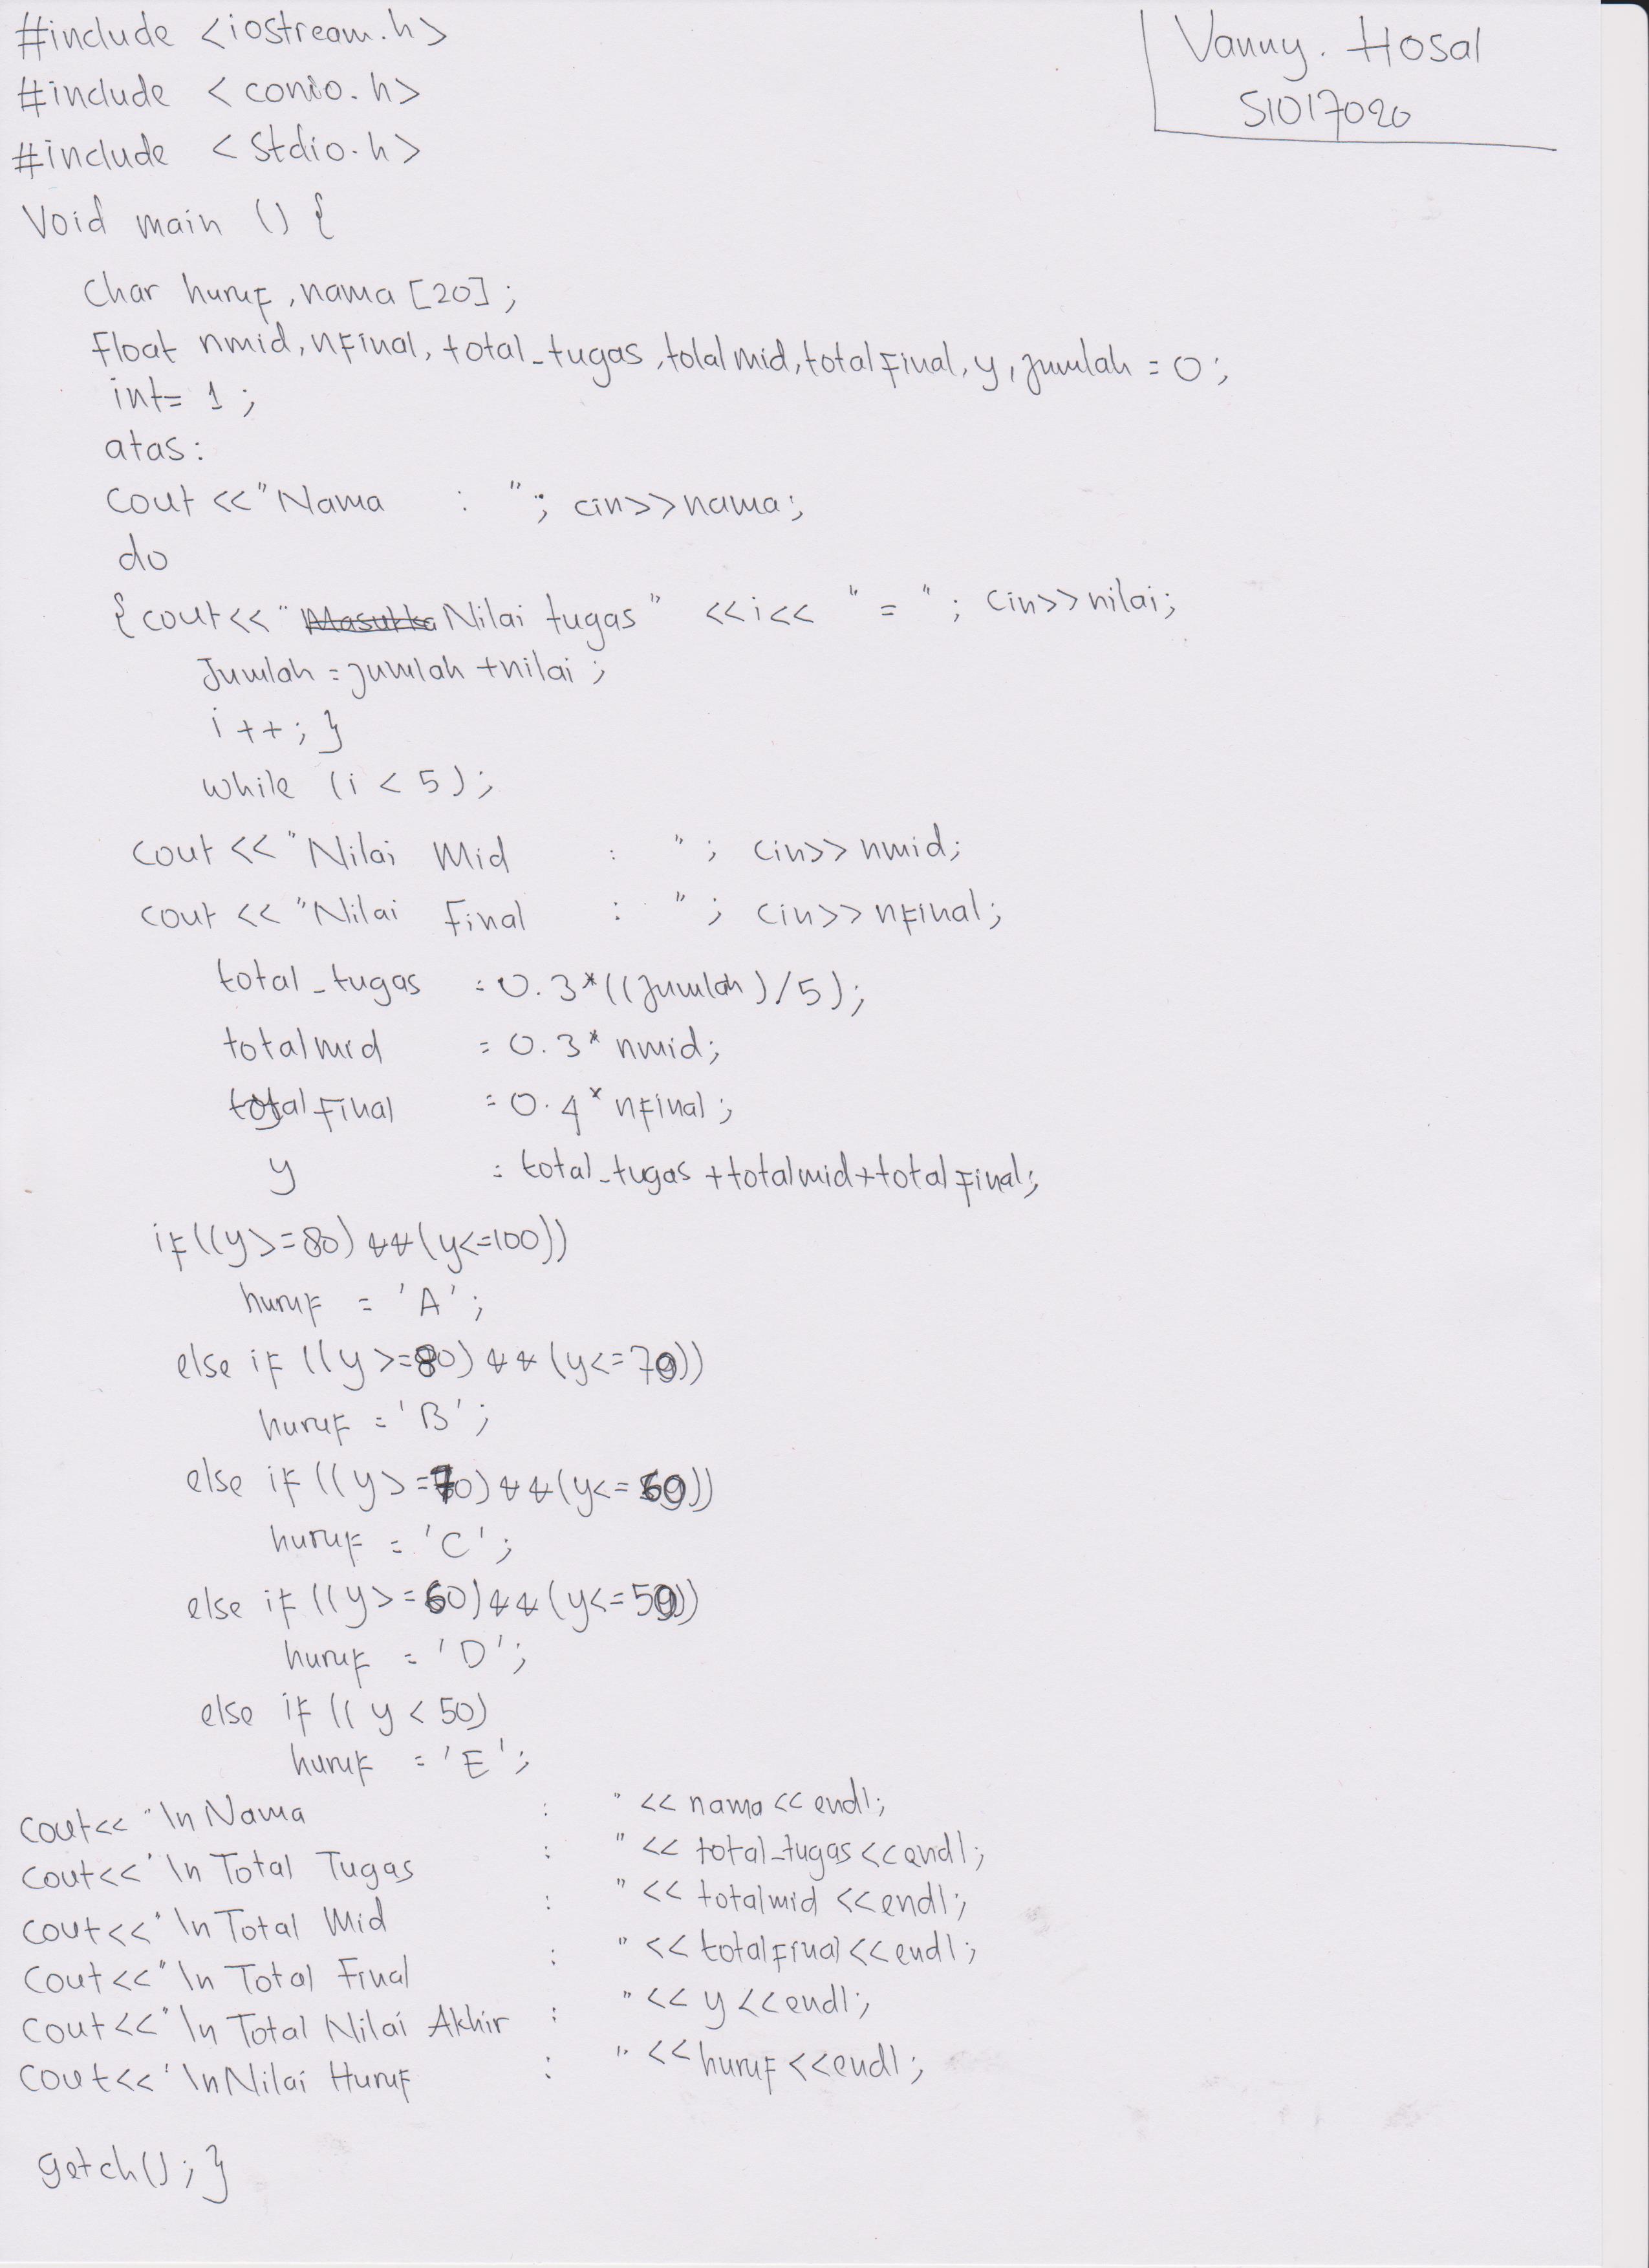 #include <iostream.h>
Vanny. Hosal
#include <conio.h>
S1017020
#include <stdio.h>
Void main () {
Char huruf, nama [20];
float nmid, nfinal, total_tugas, totalmid, totalfinal, y, jumlah = 0;
int= 1;
atas:
Cout <<"Nama : "; cin>>nama;
do
{ cout<< " Nilai tugas" <<i<< " = " ; cin>>nilai;
Jumlah = jumlah +nilai;
i ++; }
while (i < 5);
cout <<"Nilai Mid : " ; cin>> nmid;
cout <<"Nilai final : " ; cin>> nfinal;
total_tugas = 0.3*((jumlah)/5);
totalmid = 0.3* nmid;
totalfinal = 0.4* nfinal;
y = total_tugas +totalmid+totalfinal;
if((y>=80) &&(y<=100))
huruf = 'A';
else if ((y>=80) && (y<=79))
huruf = 'B';
else if ((y>=70) &&(y<=69))
huruf = 'C';
else if ((y>=60)&&(y<=59))
huruf = 'D';
else if (( y < 50)
huruf = 'E';
cout<< "\n Nama : " << nama << endl;
cout<<"\n Total Tugas : " << total_tugas <<endl;
cout<<"\n Total Mid : " << totalmid <<endl;
cout<<"\n Total Final : " << totalfinal<<endl;
cout<<"\n Total Nilai Akhir : " << y <<endl;
cout<< "\n Nilai Huruf : " << huruf <<endl;
getch(); }